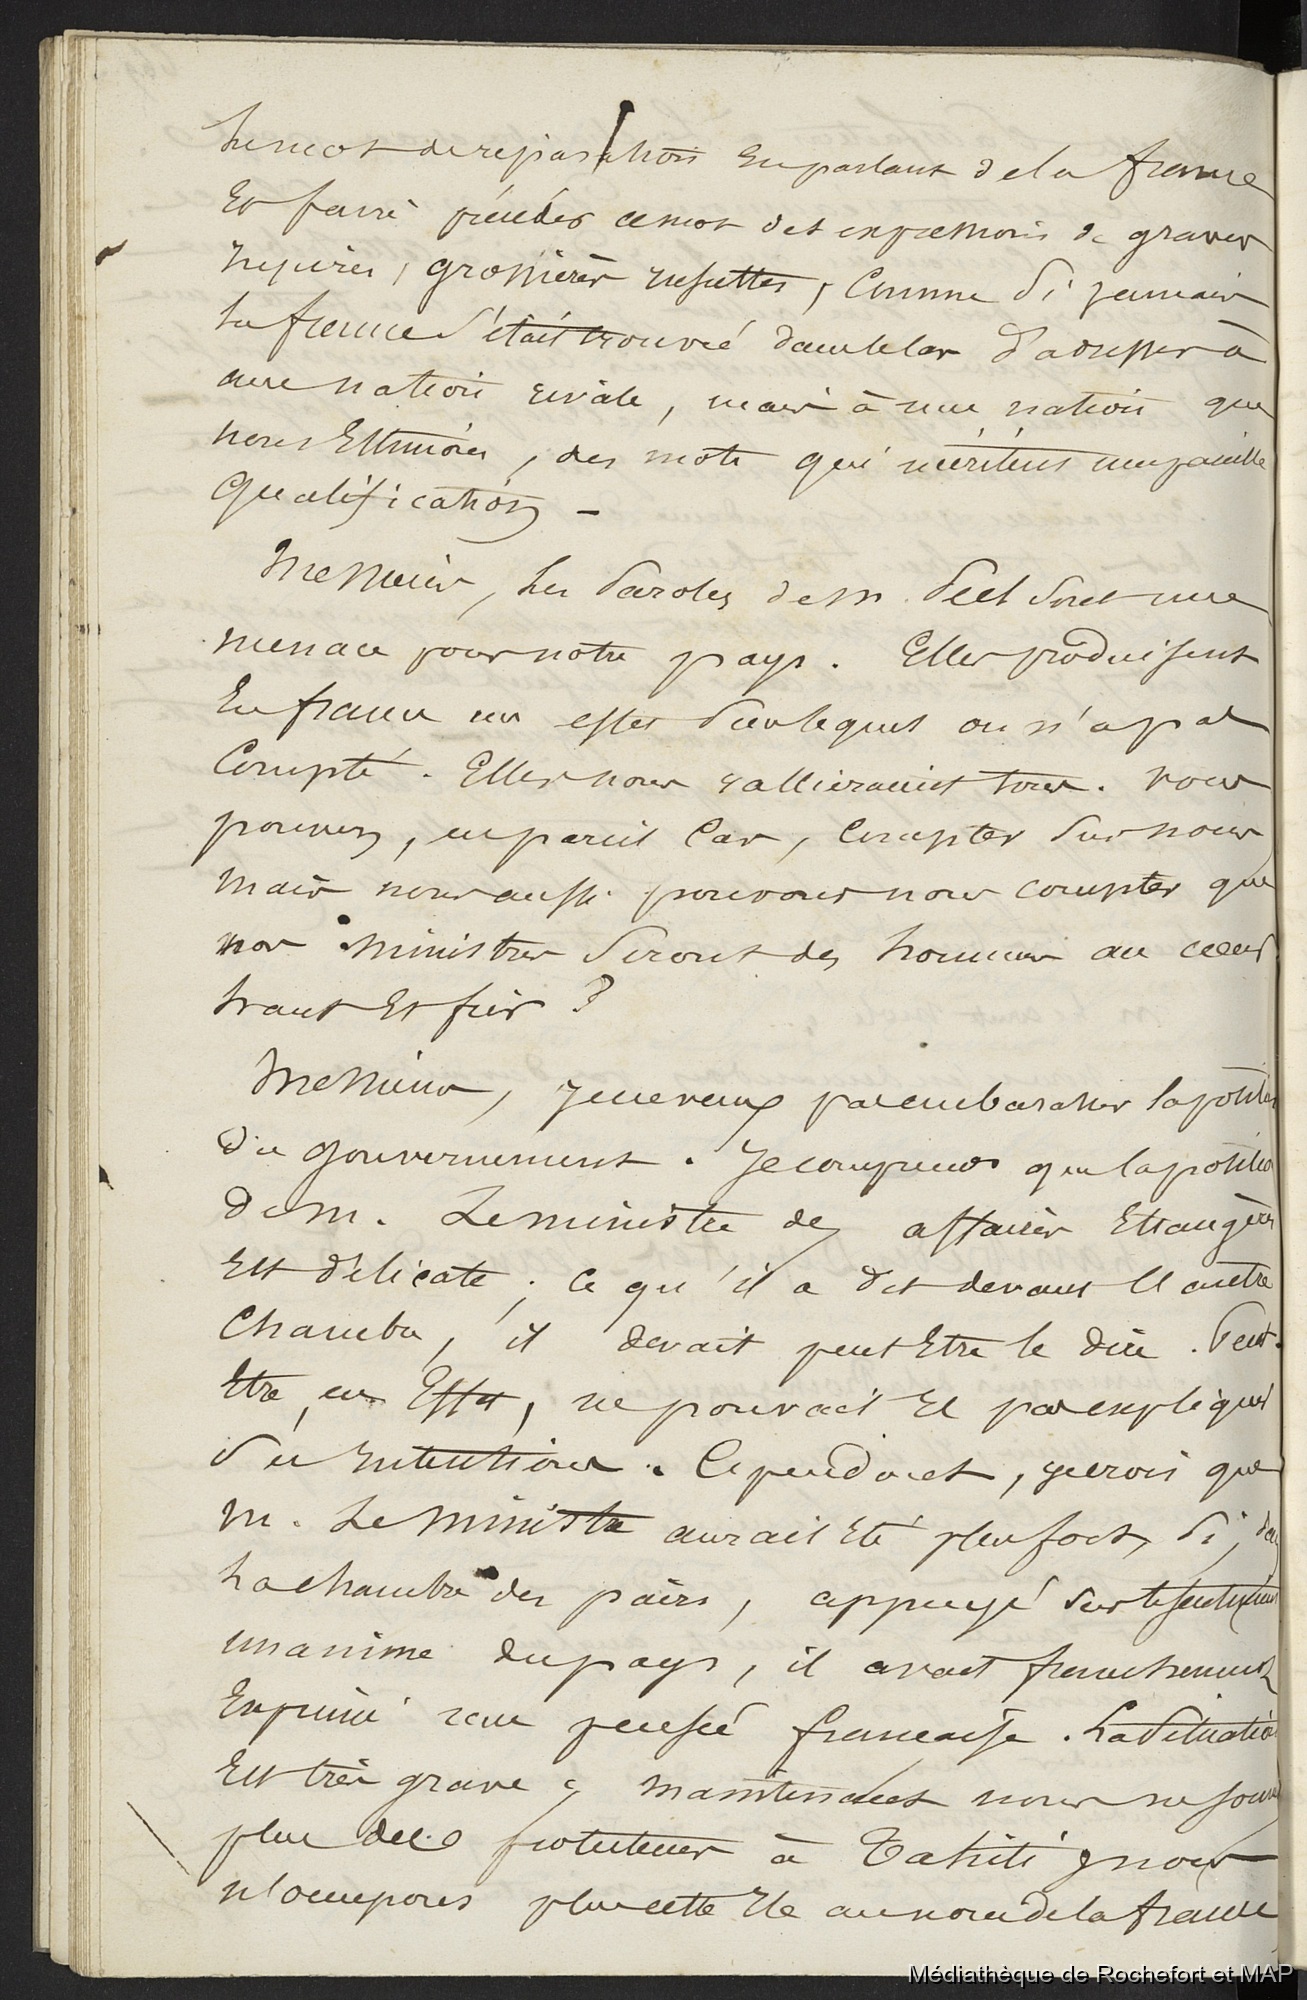 Le mot de réparation en parlant de la france
Et faire précéder ce mot des expressions de graves
injures, grossières insultes, Comme si jamais
La france s'était trouvé dans le cas d'adresser à
une nation rivale, mais à une nation que
nous Estimons, des mots qui méritent une pareille
Qualification –
Messieurs, Les Paroles de M. Peel sont une
menace pour notre pays. Elles produisent
En france un effet sur lequel on n'a pas
Compté. Elles nous rallieraient tous. vous
pouvez, en pareil Cas, Compter sur nous
Mais nous aussi pouvons nous compter que
nos Ministres seront des hommes au cœur
haut Et fier ?
Messieurs, Je ne veux pas embarasser la position
du gouvernement. Je comprends que la position
de M. Le ministre des affaires Etrangères
Est délicate ; Ce qu'il a dit devant l'autre
Chambre, il devait peut Etre le dire. Peut-
Etre, en Effet, ne pouvait il pas expliquer
ses intentions. Cependant, je crois que
M. Le Ministre aurait Eté plus fort, si, dans
La chambre des pairs, appuyé sur le sentiment
unanime du pays, il avait franchement
Exprimé une pensée francaise. La situation
Est très grave ; maintenant nous ne sommes
plus des protecteurs à Tahiti ; nous
n'occupons plus cette Ile au nom de la france
Médiathèque de Rochefort et MAP